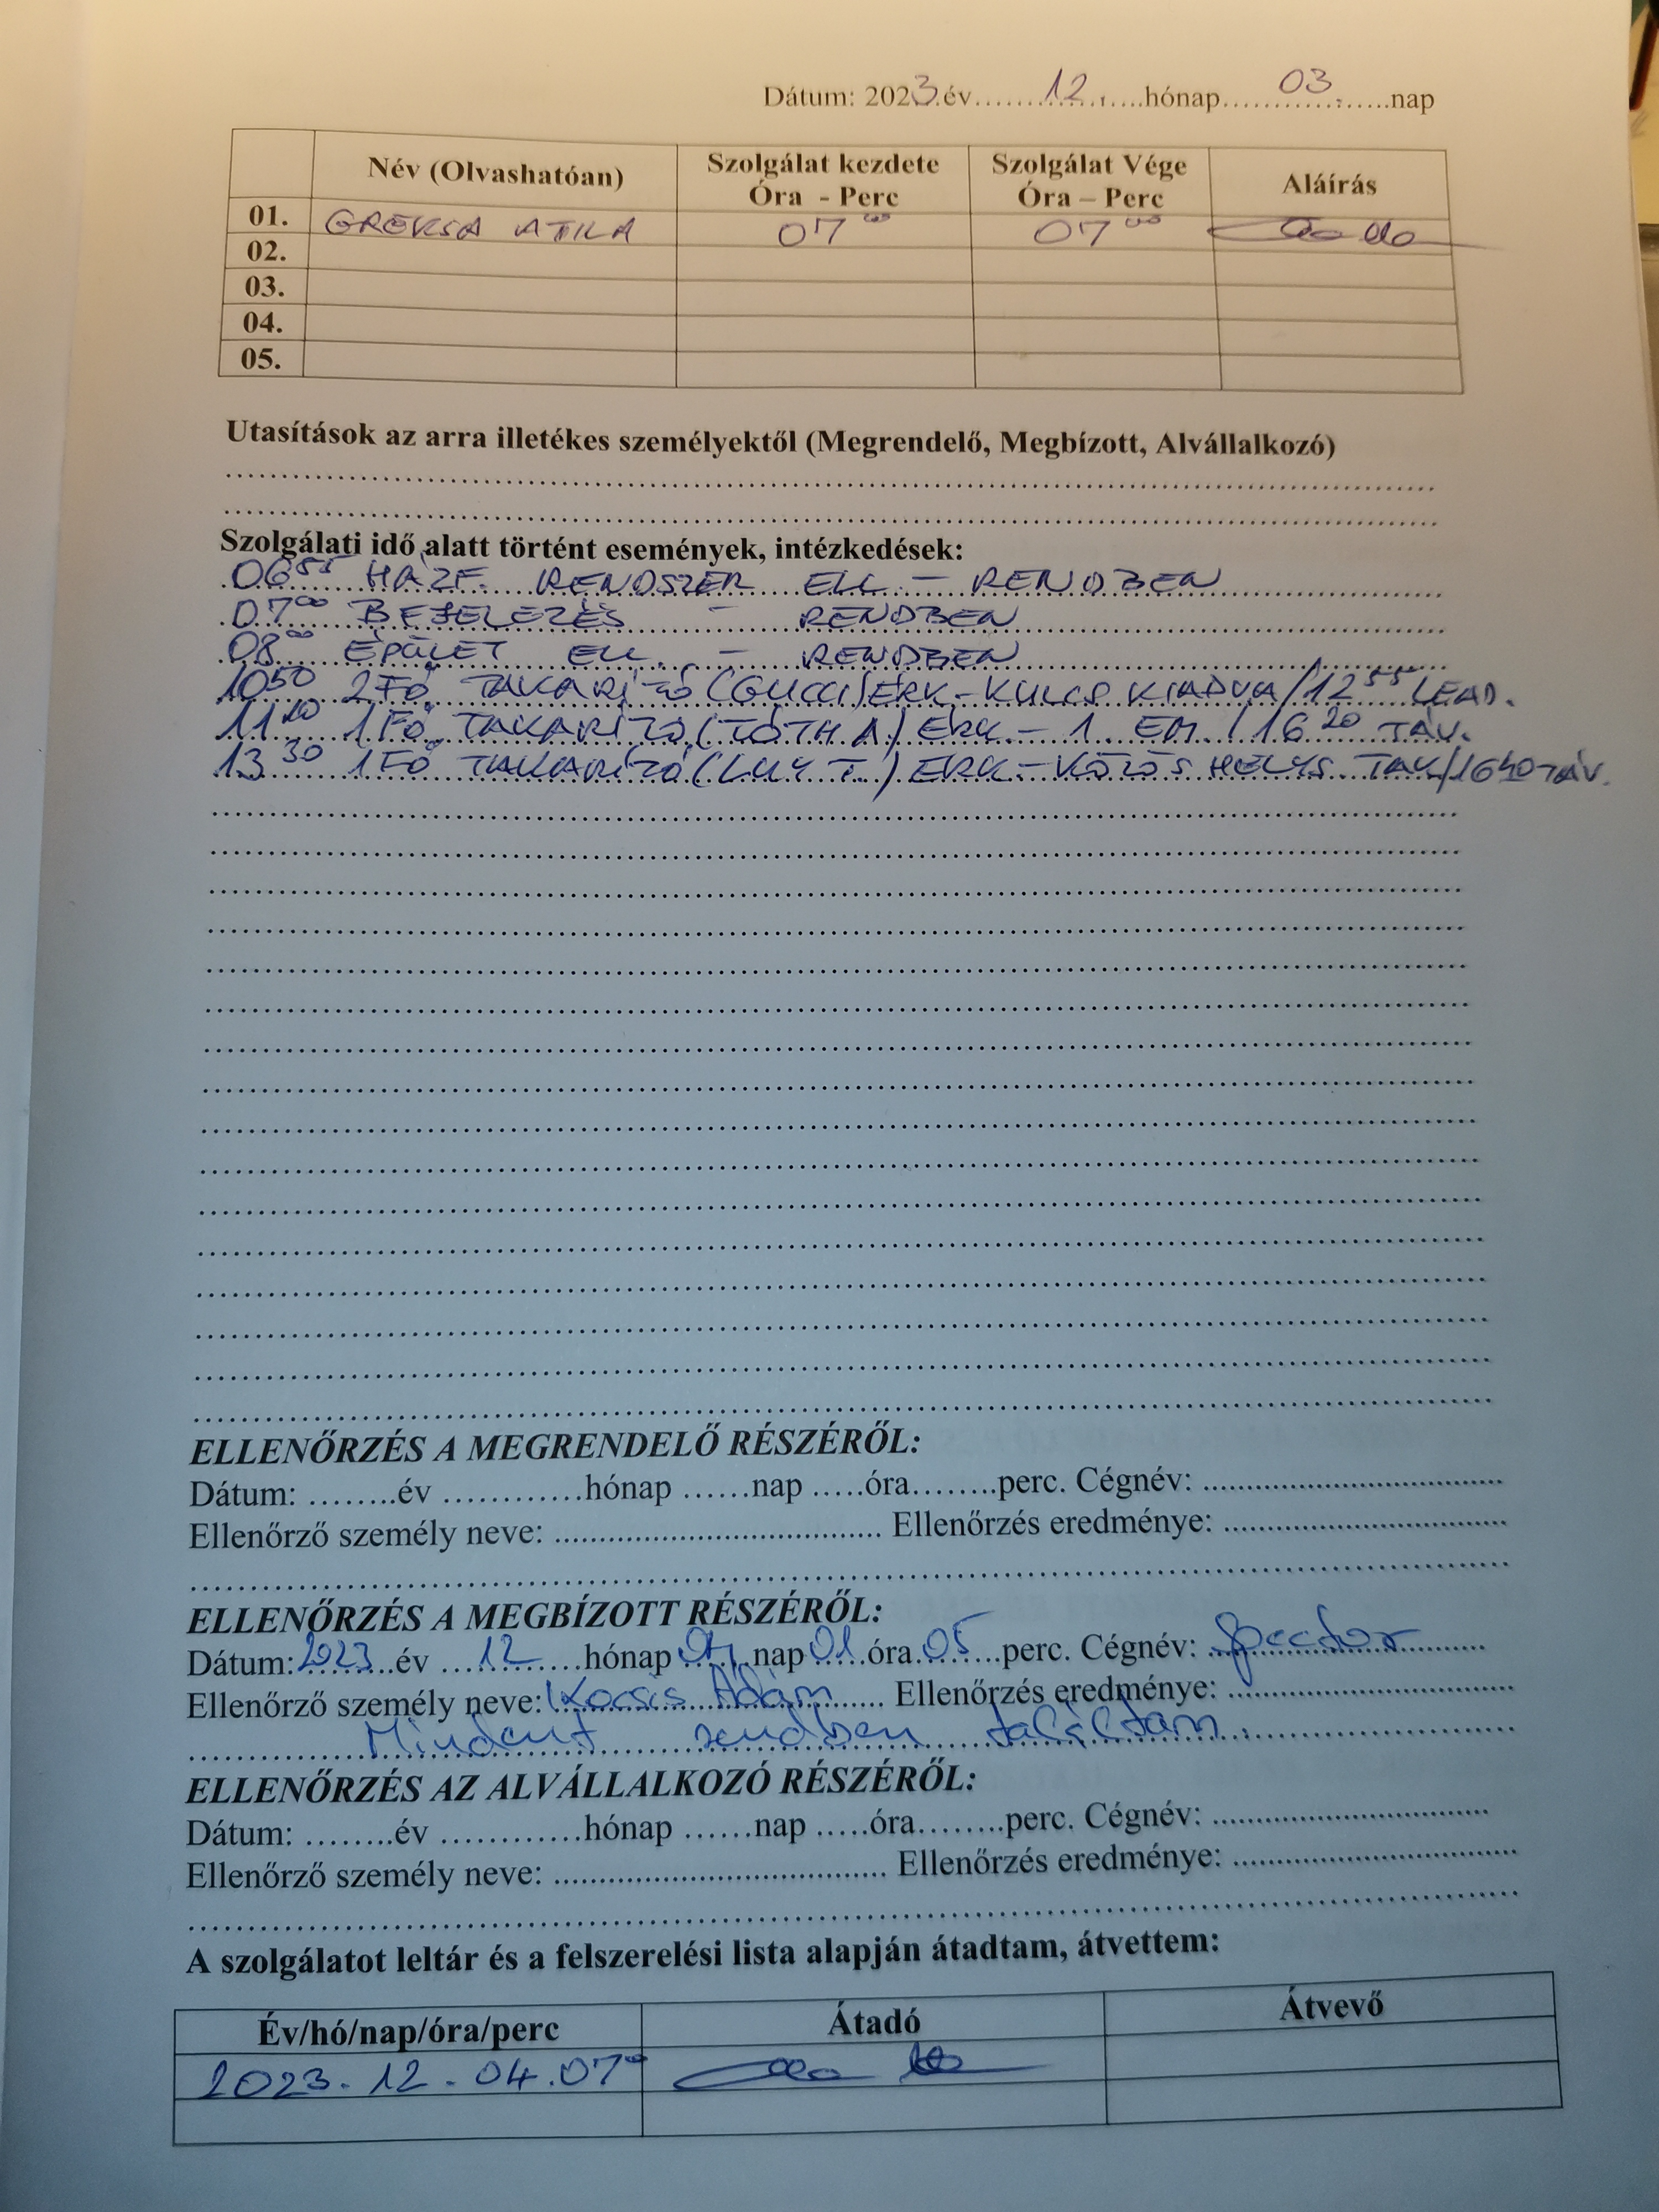 Dátum: 2023.év.......12.......hónap.......03.......nap
Név (Olvashatóan) Szolgálat kezdete Óra - Perc Szolgálat Vége Óra – Perc Aláírás
01. GREKSA ATILA 07 00 07 00
02.
03.
04.
05.
Utasítások az arra illetékes személyektől (Megrendelő, Megbízott, Alvállalkozó)
Szolgálati idő alatt történt események, intézkedések:
06 55 HÁZF. RENDSZER ELL - RENDBEN
07 00 BEJELEZÉS - RENDBEN
08 00 ÉPÜLET ELL. - RENDBEN
10 50 2 FŐ TAKARÍTÓ (GUCCI) ÉRK - KULCS KIADVA / 12 55 LEAD.
11 20 1 FŐ TAKARÍTÓ (TÓTH A) ÉRK. - 1. EM. / 16 20 TÁV.
13 30 1 FŐ TAKARÍTÓ ( T.) ÉRK. - KÖZÖS HELYS. TAK / 16 40 TÁV.
ELLENŐRZÉS A MEGRENDELŐ RÉSZÉRŐL:
Dátum: ........év ............hónap ......nap .....óra........perc. Cégnév: ........
Ellenőrző személy neve: ........ Ellenőrzés eredménye: ........
ELLENŐRZÉS A MEGBÍZOTT RÉSZÉRŐL:
Dátum: 2023 év 12 hónap 04 nap 01 óra 05 perc. Cégnév: Spector
Ellenőrző személy neve: Kocsis Ádám Ellenőrzés eredménye: ........
Mindent rendben találtam.
ELLENŐRZÉS AZ ALVÁLLALKOZÓ RÉSZÉRŐL:
Dátum: ........év ............hónap ......nap .....óra........perc. Cégnév: ........
Ellenőrző személy neve: ........ Ellenőrzés eredménye: ........
A szolgálatot leltár és a felszerelési lista alapján átadtam, átvettem:
Év/hó/nap/óra/perc Átadó Átvevő
2023. 12. 04. 07 00